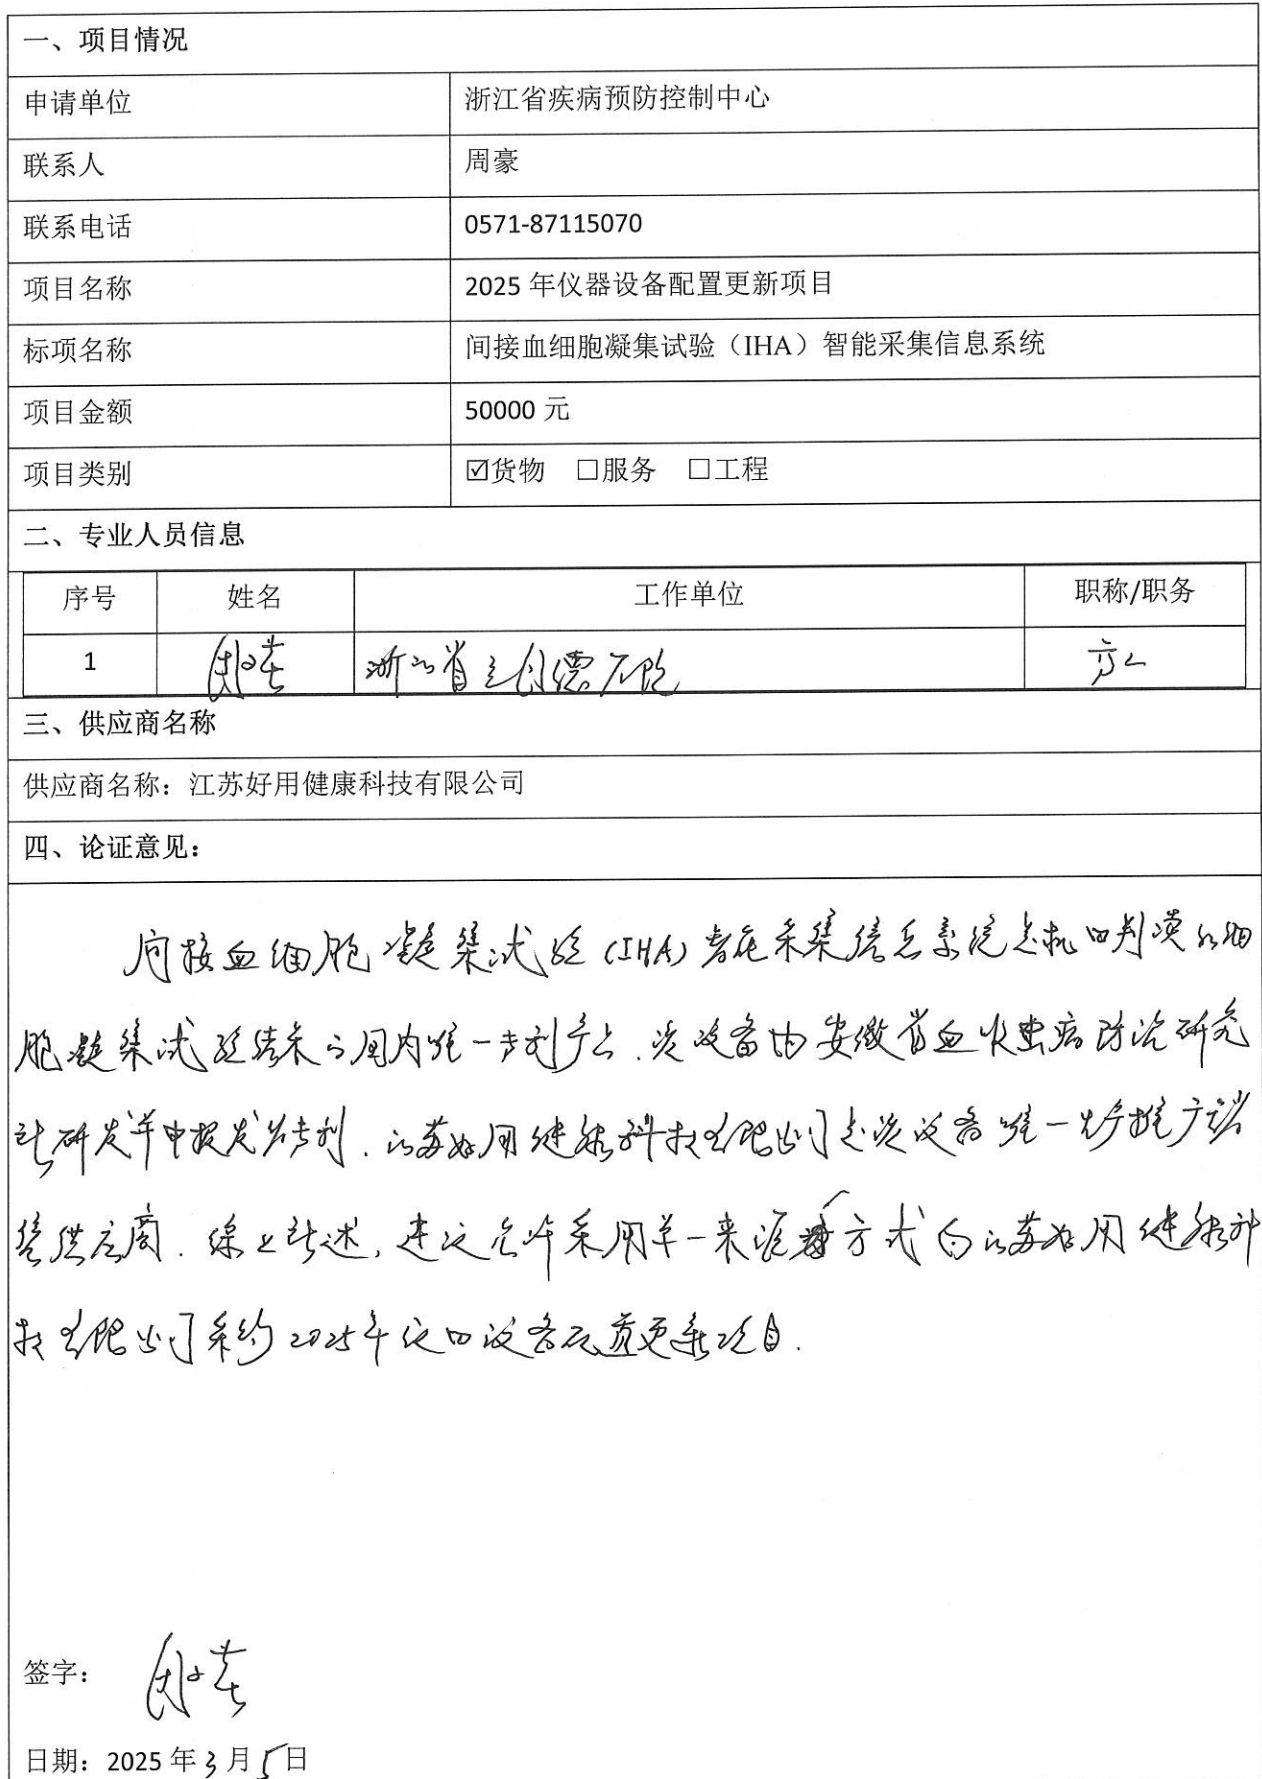 一、项目情况
申请单位 浙江省疾病预防控制中心
联系人 周豪
联系电话 0571-87115070
项目名称 2025 年仪器设备配置更新项目
标项名称 间接血细胞凝集试验（IHA）智能采集信息系统
项目金额 50000 元
项目类别 ☑货物 □服务 □工程
二、专业人员信息
序号 姓名 工作单位 职称/职务
1 浙江省立同德医院 高工
三、供应商名称
供应商名称：江苏好用健康科技有限公司
四、论证意见：
间接血细胞凝集试验（IHA）智能采集信息系统是机器判读红细
胞凝集试验结果的国内唯一专利产品.该设备由安徽省血吸虫病防治研究
所研发并申报发明专利.江苏好用健康科技有限公司是该设备唯一生产推广销
售供应商.综上所述,建议允许采用单一来源方式向江苏好用健康科
技有限公司采购2025年仪器设备配置更新项目.
签字：
日期：2025 年 3 月 5 日